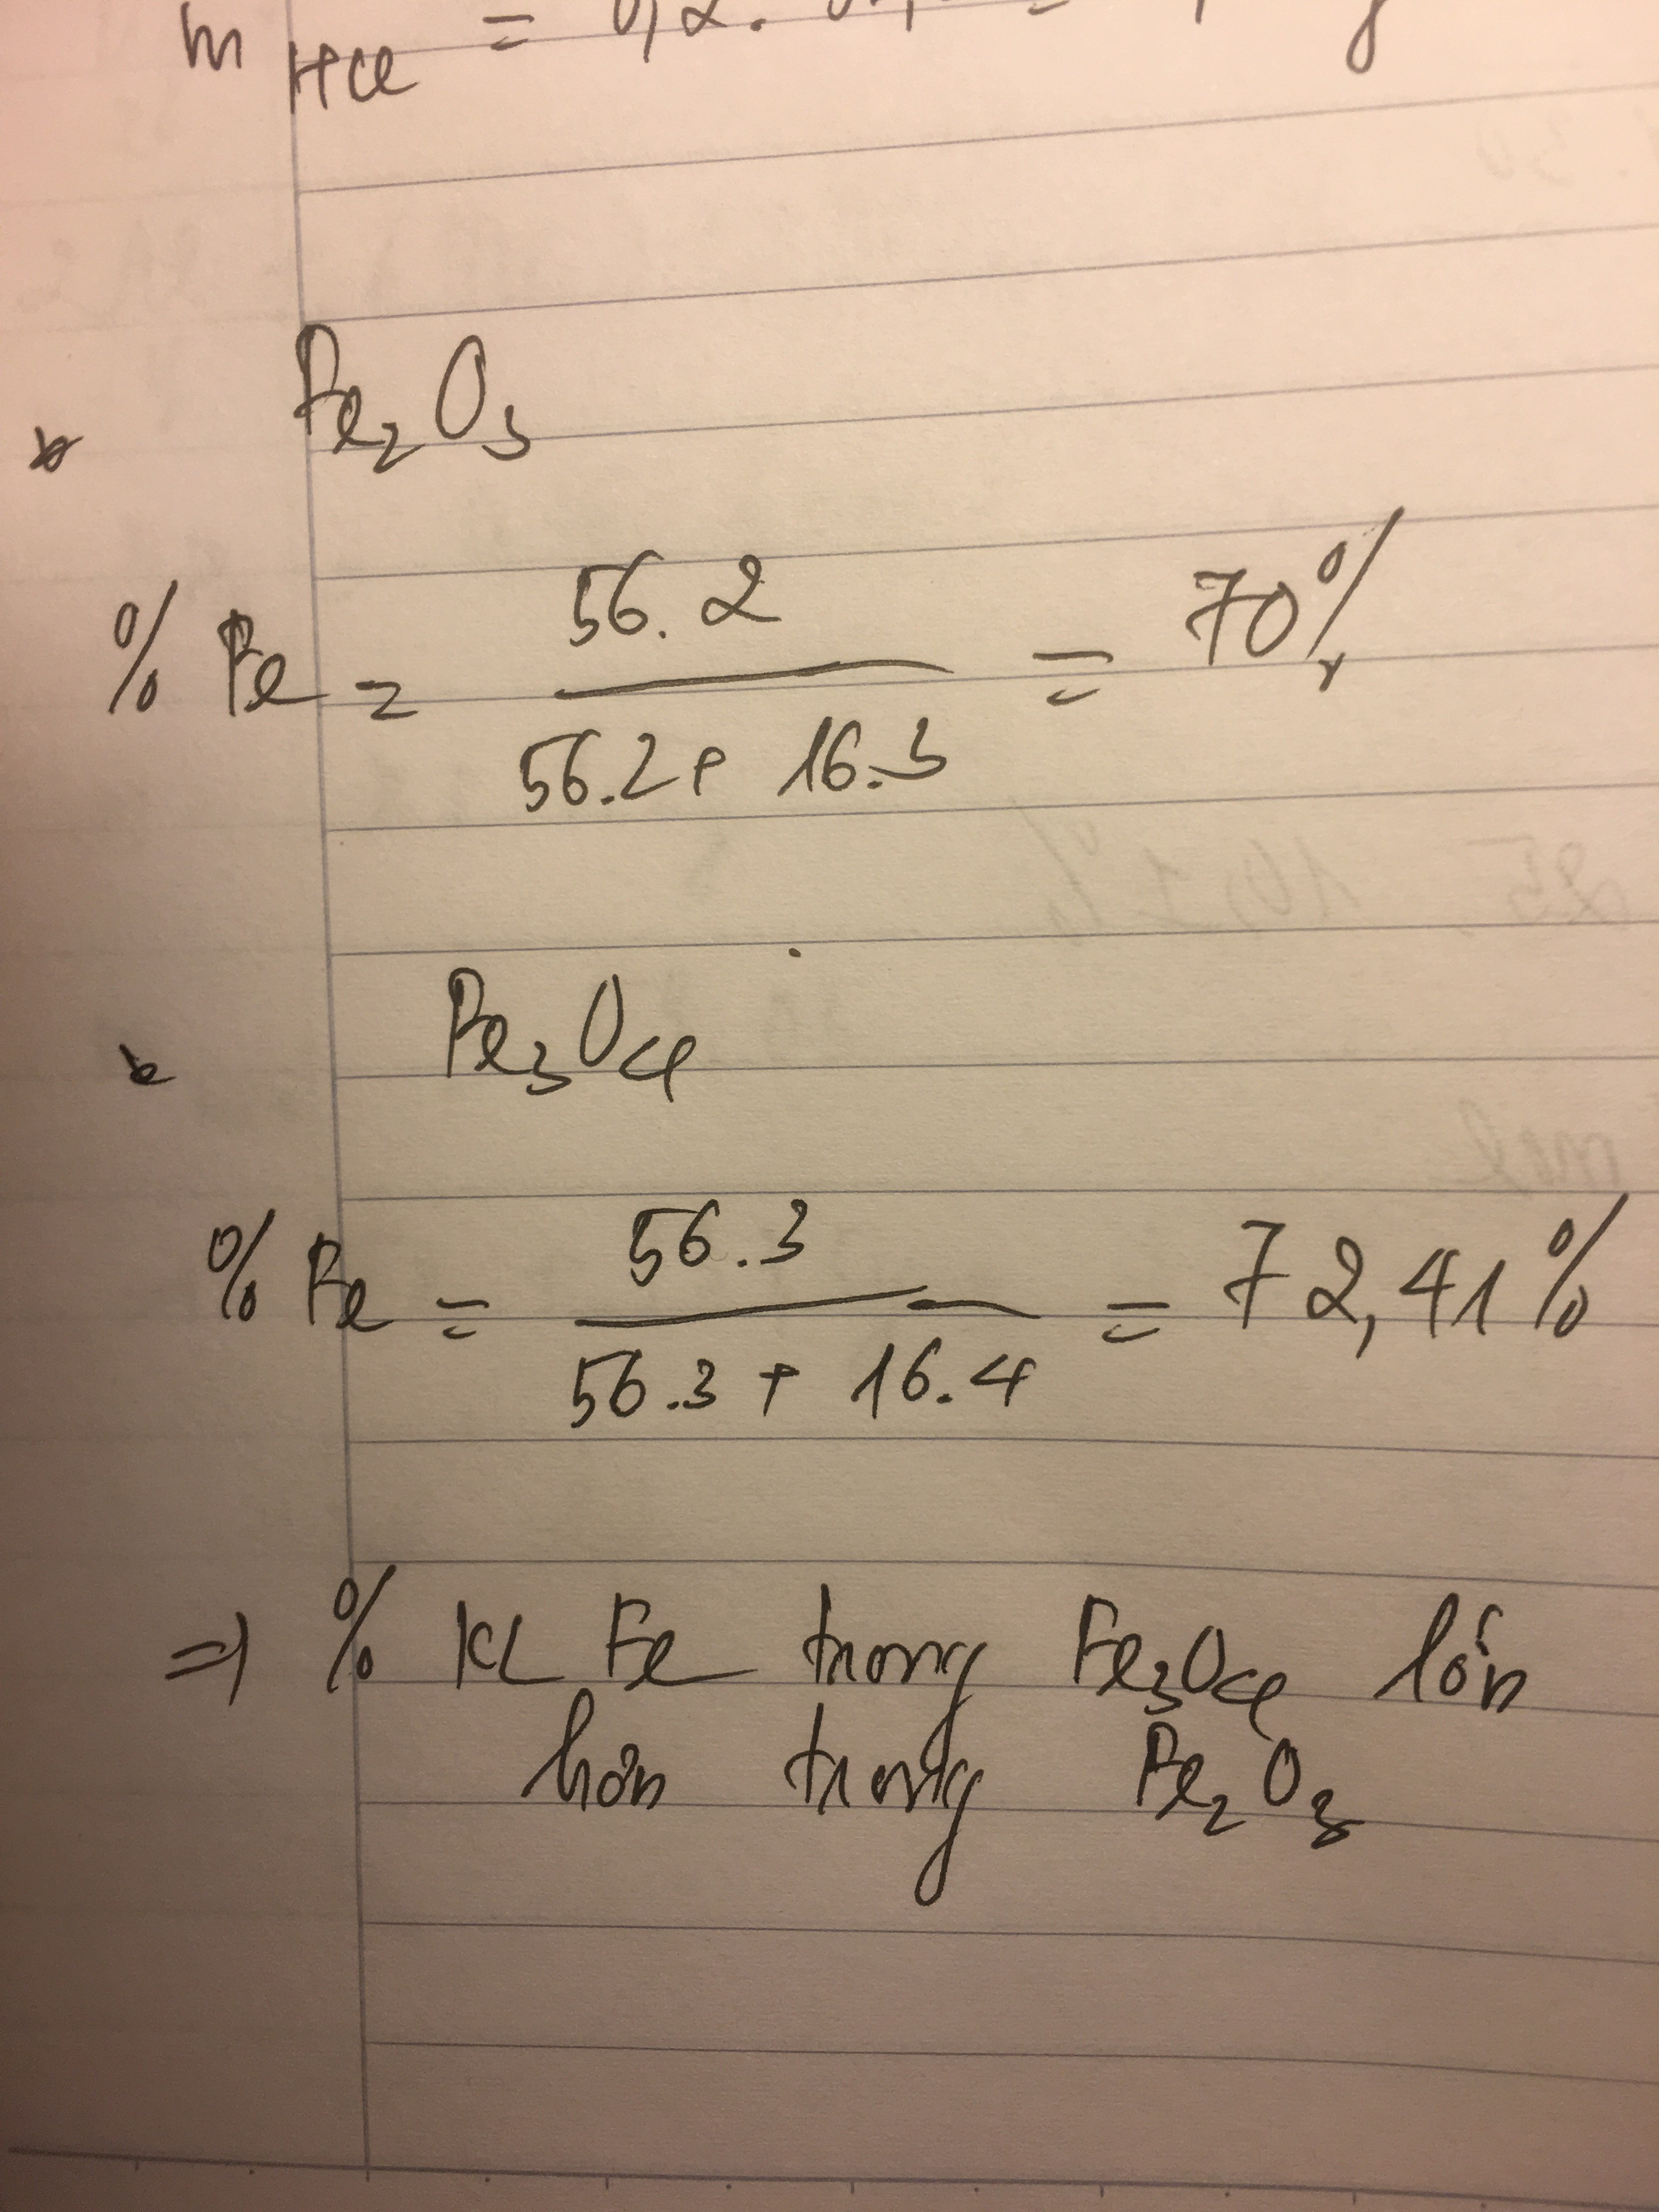 m HCl = 0,2.
* Fe₂O₃
% Fe = 56.2 / 56.2 + 16.3 = 70%
* Fe₃O₄
% Fe = 56.3 / 56.3 + 16.4 = 72,41%
=> % KL Fe trong Fe₃O₄ lớn
hơn trong Fe₂O₃